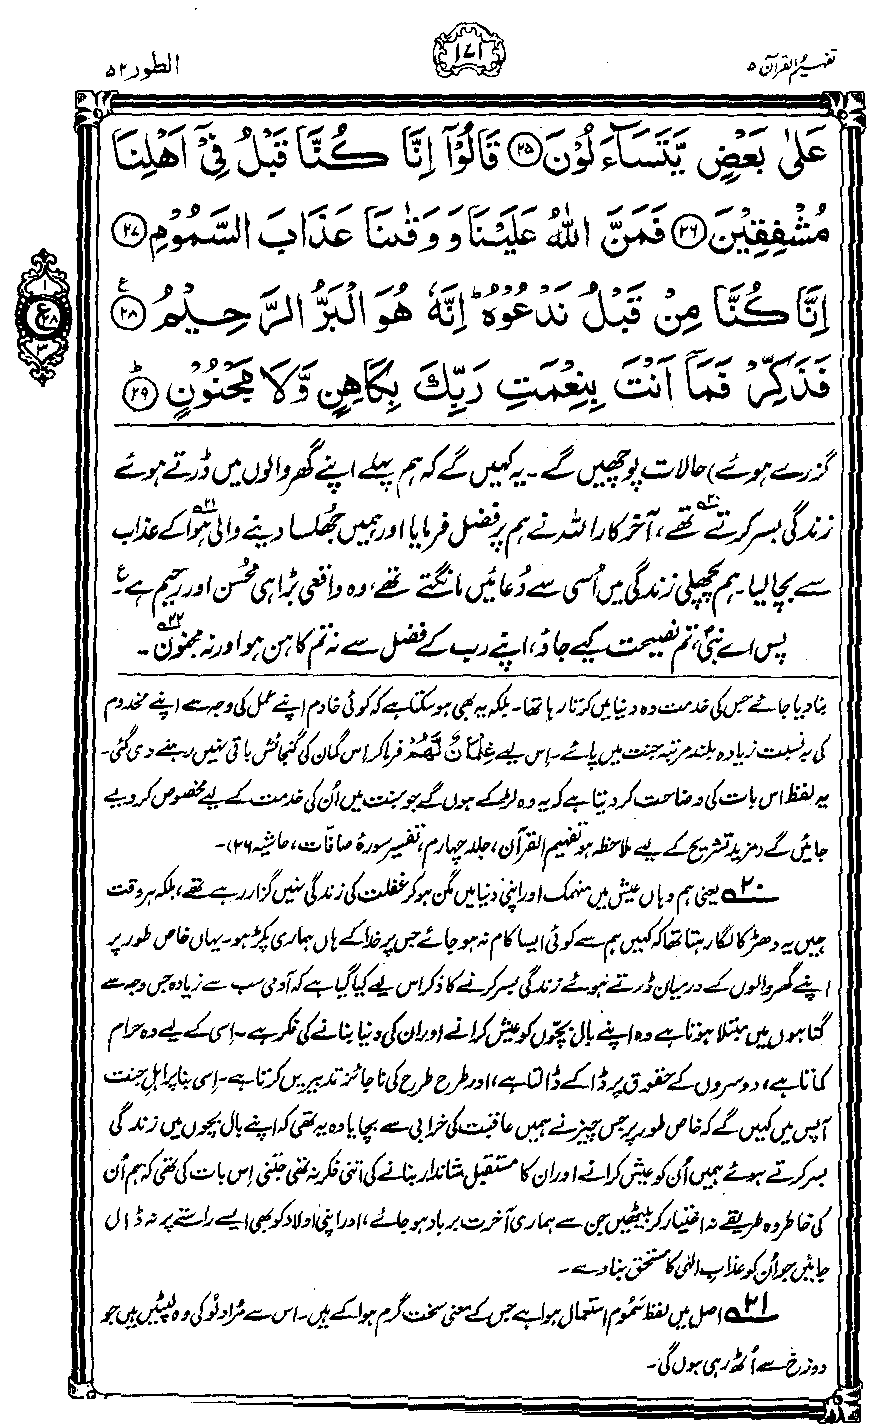 تفہیم القرآن ۵
۱۷۱
الطور ۵۲
عَلٰى بَعْضٍ يَّتَسَآءَلُوْنَ ۲۵ قَالُوْٓا اِنَّا كُنَّا قَبْلُ فِيْٓ اَهْلِنَا
مُشْفِقِيْنَ ۲۶ فَمَنَّ اللّٰهُ عَلَيْنَا وَوَقٰىنَا عَذَابَ السَّمُوْمِ ۲۷
اِنَّا كُنَّا مِنْ قَبْلُ نَدْعُوْهُ ؕ اِنَّهٗ هُوَ الْبَرُّ الرَّحِيْمُ ۲۸ ع
فَذَكِّرْ فَمَآ اَنْتَ بِنِعْمَتِ رَبِّكَ بِكَاهِنٍ وَّلَا مَجْنُوْنٍ ۲۹ؕ
۱
ع
۲۸
۳
گزرے ہوئے) حالات پوچھیں گے۔ یہ کہیں گے کہ ہم پہلے اپنے گھر والوں میں ڈرتے ہوئے
زندگی بسر کرتے تھے۲۰، آخر کار اللہ نے ہم پر فضل فرمایا اور ہمیں جھلسا دینے والی ہوا۲۱ کے عذاب
سے بچا لیا۔ ہم پچھلی زندگی میں اُسی سے دُعائیں مانگتے تھے، وہ واقعی بڑا ہی محسن اور رحیم ہے۔ ع
پس اے نبیؐ، تم نصیحت کیے جاؤ، اپنے رب کے فضل سے نہ تم کاہن ہو اور نہ مجنون۲۲۔
بنا دیا جائے جس کی خدمت وہ دنیا میں کرتا رہا تھا۔ بلکہ یہ بھی ہو سکتا ہے کہ کوئی خادم اپنے عمل کی وجہ سے اپنے مخدوم
کی بہ نسبت زیادہ بلند مرتبہ جنت میں پائے۔ اس لیے غِلْمَانٌ لَّهُمْ فرما کر اس گمان کی گنجائش باقی نہیں رہنے دی گئی۔
یہ لفظ اس بات کی وضاحت کر دیتا ہے کہ یہ وہ لڑکے ہوں گے جو جنت میں اُن کی خدمت کے لیے مخصوص کر دیے
جائیں گے (مزید تشریح کے لیے ملاحظہ ہو تفہیم القرآن، جلد چہارم، تفسیر سورۂ صافات، حاشیہ ۲۶)۔
۲۰ یعنی ہم وہاں عیش میں منہمک اور اپنی دنیا میں مگن ہو کر غفلت کی زندگی نہیں گزار رہے تھے، بلکہ ہر وقت
ہمیں یہ دھڑکا لگا رہتا تھا کہ کہیں ہم سے کوئی ایسا کام نہ ہو جائے جس پر خدا کے ہاں ہماری پکڑ ہو۔ یہاں خاص طور پر
اپنے گھر والوں کے درمیان ڈرتے ہوئے زندگی بسر کرنے کا ذکر اس لیے کیا گیا ہے کہ آدمی سب سے زیادہ جس وجہ سے
گناہوں میں مبتلا ہوتا ہے وہ اپنے بال بچّوں کو عیش کرانے اور ان کی دنیا بنانے کی فکر ہے۔ اسی کے لیے وہ حرام
کماتا ہے، دوسروں کے حقوق پر ڈاکے ڈالتا ہے، اور طرح طرح کی ناجائز تدبیریں کرتا ہے۔ اِسی بنا پر اہلِ جنت
آپس میں کہیں گے کہ خاص طور پر جس چیز نے ہمیں عاقبت کی خرابی سے بچایا وہ یہ تھی کہ اپنے بال بچوں میں زندگی
بسر کرتے ہوئے ہمیں اُن کو عیش کرانے اور ان کا مستقبل شاندار بنانے کی اتنی فکر نہ تھی جتنی اِس بات کی تھی کہ ہم اُن
کی خاطر وہ طریقے نہ اختیار کر بیٹھیں جن سے ہماری آخرت برباد ہو جائے، اور اپنی اولاد کو بھی ایسے راستے پر نہ ڈال
جائیں جو اُن کو عذابِ الٰہی کا مستحق بنا دے۔
۲۱ اصل میں لفظ سَمُوم استعمال ہوا ہے جس کے معنی سخت گرم ہوا کے ہیں۔ اس سے مُراد لُو کی وہ لپٹیں ہیں جو
دوزخ سے اُٹھ رہی ہوں گی۔